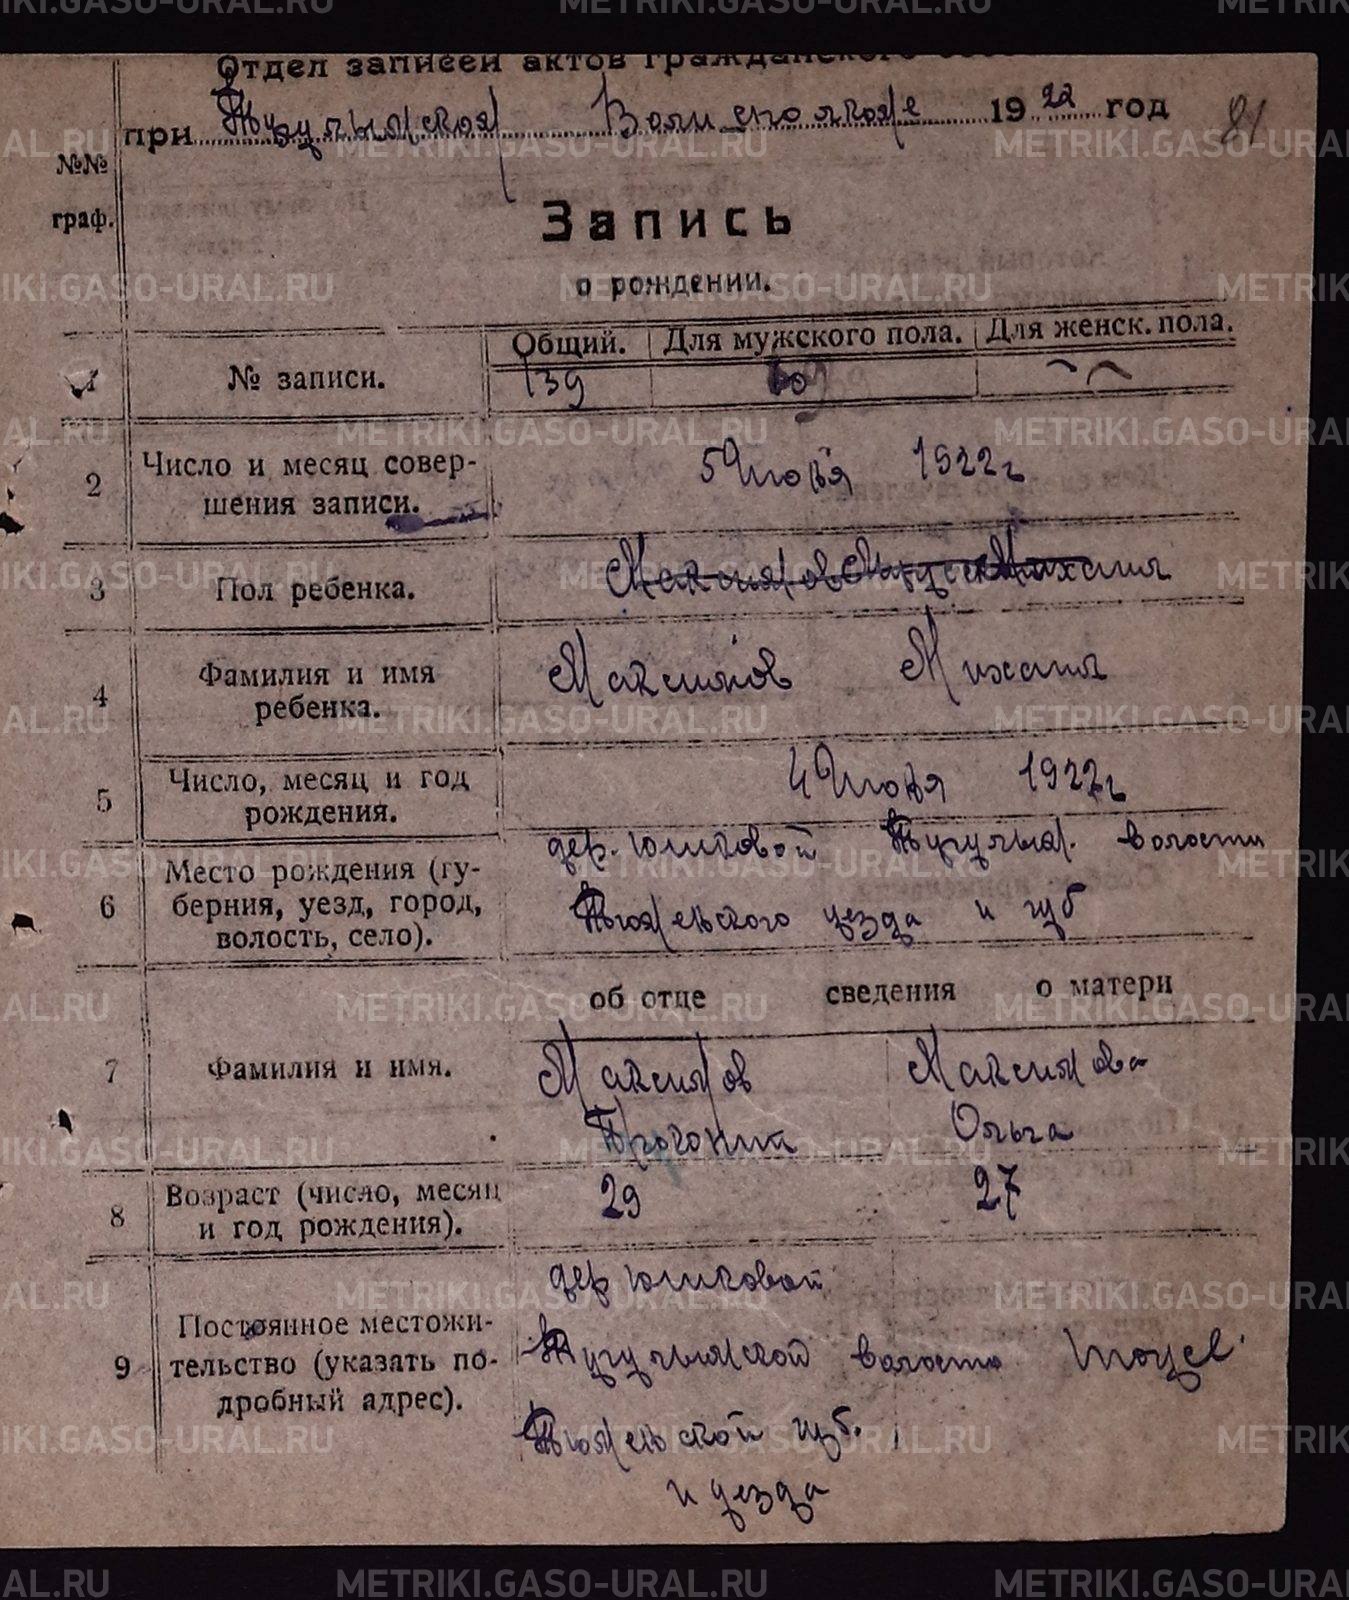 Отдел записей актов гражданского
при Тугулымской Волисполкоме 1922 год
81
№№
граф.
Запись
о рождении.
Общий. Для мужского пола. Для женск. пола.
1 № записи. 139
2 Число и месяц совер-
шения записи. 5 Июля 1922 г
3 Пол ребенка. Максимов Михаил
4 Фамилия и имя
ребенка. Максимов Михаил
5 Число, месяц и год
рождения. 4 Июля 1922 г
6 Место рождения (гу-
берния, уезд, город,
волость, село).
дер. Юшковой Тугулым. волости
Тюменского уезда и губ
об отце сведения о матери
7 Фамилия и имя.
Максимов Максимова
Ольга
8 Возраст (число, месяц
и год рождения). 29 27
9 Постоянное местожи-
тельство (указать по-
дробный адрес).
дер Юшковой
Тугулымской волости
Тюменской губ.
и уезда
METRIKI.GASO-URAL.RU